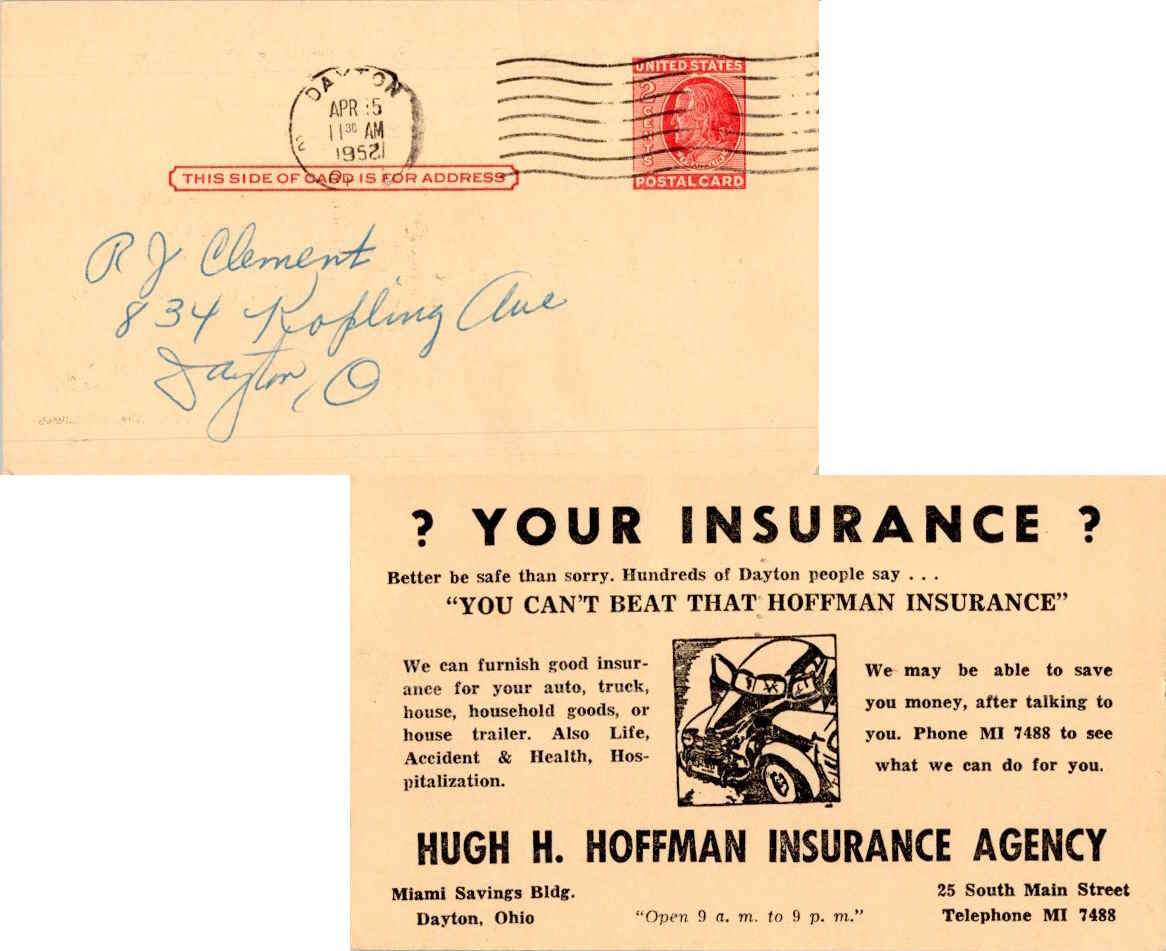 DAYTON
APR 15
11 30 AM
1952
THIS SIDE OF CARD IS FOR ADDRESS
UNITED STATES
2 CENTS
FRANKLIN
POSTAL CARD
R J Clement
834 Kopling Ave
Dayton, O
? YOUR INSURANCE ?
Better be safe than sorry. Hundreds of Dayton people say . . .
“YOU CAN’T BEAT THAT HOFFMAN INSURANCE”
We can furnish good insur-
ance for your auto, truck,
house, household goods, or
house trailer. Also Life,
Accident & Health, Hos-
pitalization.
We may be able to save
you money, after talking to
you. Phone MI 7488 to see
what we can do for you.
HUGH H. HOFFMAN INSURANCE AGENCY
Miami Savings Bldg.
Dayton, Ohio
“Open 9 a. m. to 9 p. m.”
25 South Main Street
Telephone MI 7488